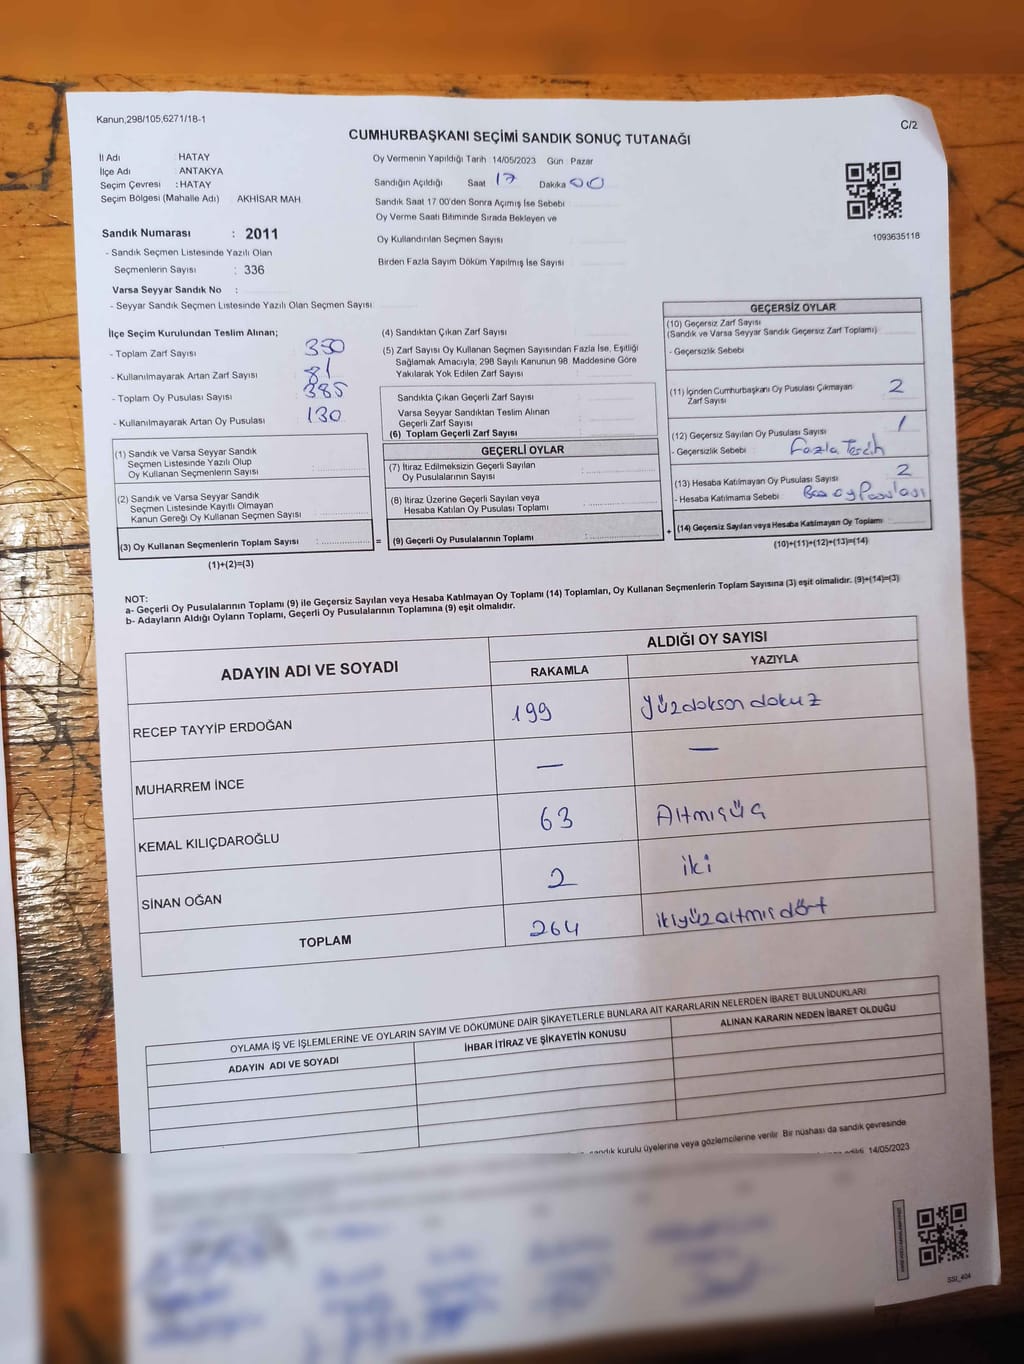 Kanun,298/105,6271/18-1
C/2
CUMHURBAŞKANI SEÇİMİ SANDIK SONUÇ TUTANAĞI
İl Adı : HATAY
İlçe Adı : ANTAKYA
Seçim Çevresi : HATAY
Seçim Bölgesi (Mahalle Adı) AKHİSAR MAH
Sandık Numarası : 2011
- Sandık Seçmen Listesinde Yazılı Olan
Seçmenlerin Sayısı : 336
Varsa Seyyar Sandık No :
- Seyyar Sandık Seçmen Listesinde Yazılı Olan Seçmen Sayısı
Oy Vermenin Yapıldığı Tarih 14/05/2023 Gün Pazar
Sandığın Açıldığı Saat 17 Dakika 00
Sandık Saat 17 00'den Sonra Açımış İse Sebebi
Oy Verme Saati Bitiminde Sırada Bekleyen ve
Oy Kullandırılan Seçmen Sayısı
Birden Fazla Sayım Döküm Yapılmış İse Sayısı
1093635118
İlçe Seçim Kurulundan Teslim Alınan;
- Toplam Zarf Sayısı 350
- Kullanılmayarak Artan Zarf Sayısı 81
- Toplam Oy Pusulası Sayısı 385
- Kullanılmayarak Artan Oy Pusulası 130
(1) Sandık ve Varsa Seyyar Sandık
Seçmen Listesinde Yazılı Olup
Oy Kullanan Seçmenlerin Sayısı :
(2) Sandık ve Varsa Seyyar Sandık
Seçmen Listesinde Kayıtlı Olmayan
Kanun Gereği Oy Kullanan Seçmen Sayısı :
(3) Oy Kullanan Seçmenlerin Toplam Sayısı : =
(1)+(2)=(3)
(4) Sandıktan Çıkan Zarf Sayısı
(5) Zarf Sayısı Oy Kullanan Seçmen Sayısından Fazla İse, Eşitliği
Sağlamak Amacıyla, 298 Sayılı Kanunun 98. Maddesine Göre
Yakılarak Yok Edilen Zarf Sayısı :
Sandıkta Çıkan Geçerli Zarf Sayısı
Varsa Seyyar Sandıktan Teslim Alınan
Geçerli Zarf Sayısı
(6) Toplam Geçerli Zarf Sayısı
GEÇERLİ OYLAR
(7) İtiraz Edilmeksizin Geçerli Sayılan
Oy Pusulalarının Sayısı :
(8) İtiraz Üzerine Geçerli Sayılan veya
Hesaba Katılan Oy Pusulası Toplamı :
(9) Geçerli Oy Pusulalarının Toplamı : +
GEÇERSİZ OYLAR
(10) Geçersiz Zarf Sayısı
(Sandık ve Varsa Seyyar Sandık Geçersiz Zarf Toplamı)
- Geçersizlik Sebebi
(11) İçinden Cumhurbaşkanı Oy Pusulası Çıkmayan 2
Zarf Sayısı
(12) Geçersiz Sayılan Oy Pusulası Sayısı 1
- Geçersizlik Sebebi : Fazla Tercih
(13) Hesaba Katılmayan Oy Pusulası Sayısı 2
- Hesaba Katılmama Sebebi : Boş oy Pusulası
(14) Geçersiz Sayılan veya Hesaba Katılmayan Oy Toplamı :
(10)+(11)+(12)+(13)=(14)
NOT:
a- Geçerli Oy Pusulalarının Toplamı (9) ile Geçersiz Sayılan veya Hesaba Katılmayan Oy Toplamı (14) Toplamları, Oy Kullanan Seçmenlerin Toplam Sayısına (3) eşit olmalıdır. (9)+(14)=(3)
b- Adayların Aldığı Oyların Toplamı, Geçerli Oy Pusulalarının Toplamına (9) eşit olmalıdır.
ADAYIN ADI VE SOYADI
ALDIĞI OY SAYISI
RAKAMLA YAZIYLA
RECEP TAYYİP ERDOĞAN 199 yüzdoksan dokuz
MUHARREM İNCE — —
KEMAL KILIÇDAROĞLU 63 Altmışüç
SİNAN OĞAN 2 iki
TOPLAM 264 ikiyüzaltmışdört
OYLAMA İŞ VE İŞLEMLERİNE VE OYLARIN SAYIM VE DÖKÜMÜNE DAİR ŞİKAYETLERLE BUNLARA AİT KARARLARIN NELERDEN İBARET BULUNDUKLARI
ADAYIN ADI VE SOYADI İHBAR İTİRAZ VE ŞİKAYETİN KONUSU ALINAN KARARIN NEDEN İBARET OLDUĞU
sandık kurulu üyelerine veya gözlemcilerine verilir. Bir nüshası da sandık çevresinde
edildi. 14/05/2023
SSİ_404